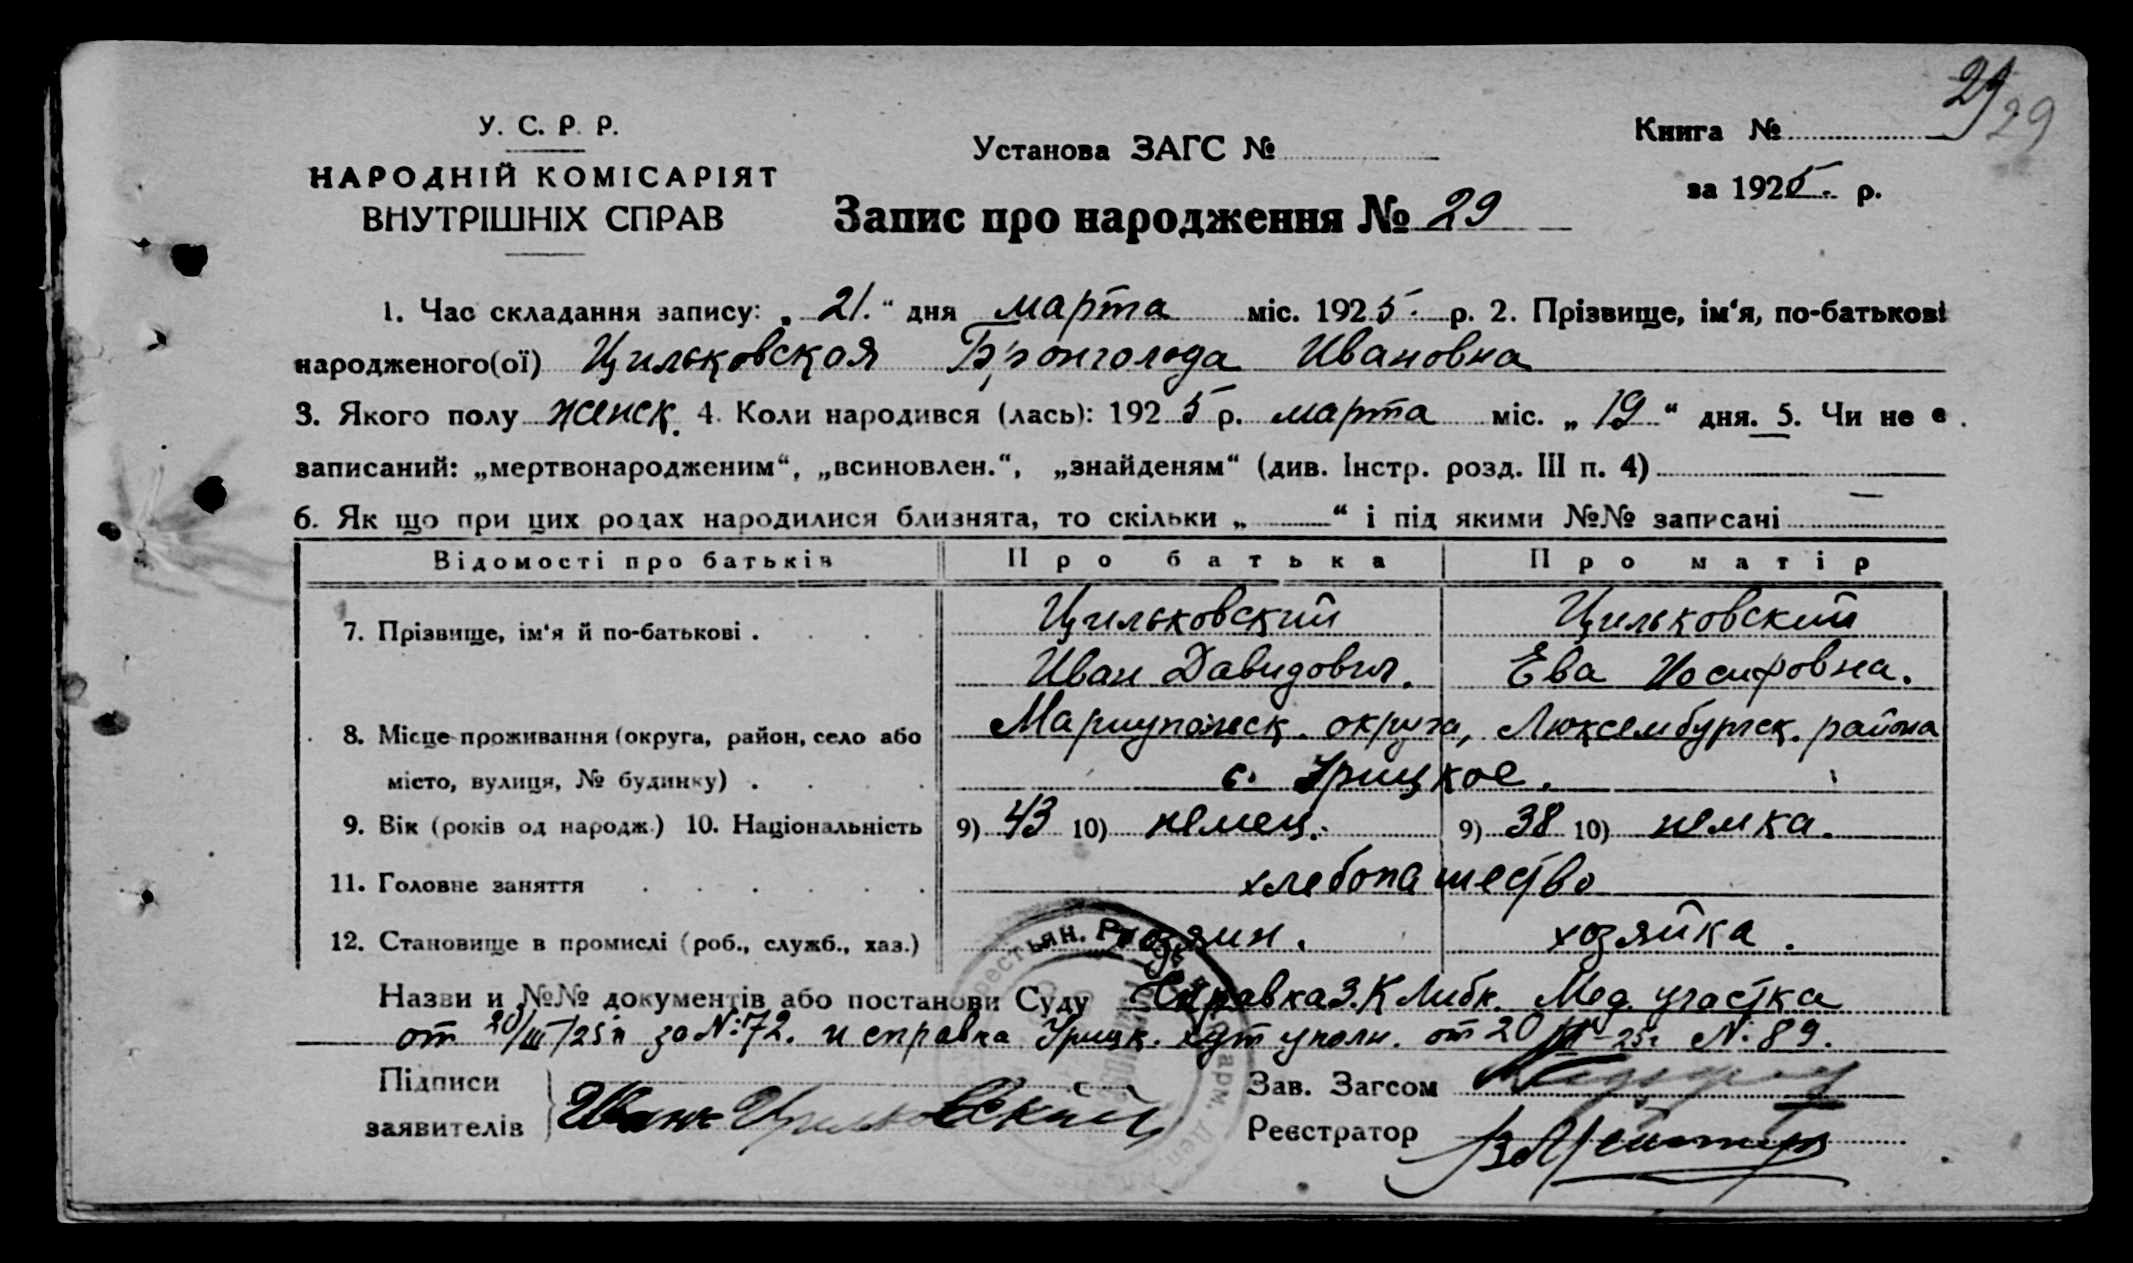 29
29
У. С. Р. Р.
НАРОДНІЙ КОМІСАРІЯТ
ВНУТРІШНІХ СПРАВ
Установа ЗАГС №
Книга №
за 1925. р.
Запис про народження № 29
1. Час складання запису: „ 21. “ дня марта міс. 1925. р. 2. Прізвище, ім‘я, по-батькові
народженого(ої) Цильковская Ивановна
3. Якого полу женск. 4. Коли народився (лась): 1925 р. марта міс. „ 19 “ дня. 5. Чи не є
записаний: „мертвонародженим“, „всиновлен.“, „знайденям“ (див. Інстр. розд. III п. 4)
6. Як що при цих родах народилися близнята, то скільки „ “ і під якими №№ записані —
Відомості про батьків Про батька Про матір
7. Прізвище, ім‘я й по-батькові . Цильковский Цильковский
Иван Давидович. Ева Иосифовна.
8. Місце проживання (округа, район, село або Мариупольск. округа, Люксембургск. района
місто, вулиця, № будинку) . с. Урицкое.
9. Вік (років од народж.) 10. Національність 9) 43 10) немец. 9) 38 10) немка.
11. Головне заняття хлебопашество
12. Становище в промислі (роб., служб., хаз.) хозяин. хозяйка.
Назви и №№ документів або постанови Суду Справка З.К Либк. Мед. участка
от 20/III/25 за №: 72. и справка Урицк. уполн. от 20 III 25г №: 89.
Підписи
заявителів Иван Цильковский
Зав. Загсом
Реєстратор